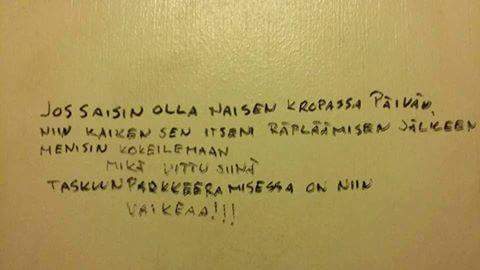 JOS SAISIN OLLA NAISEN KROPASSA PÄIVÄN,
NIIN KAIKEN SEN ITSENI RÄPLÄÄMISEN JÄLKEEN
MENISIN KOKEILEMAAN
MIKÄ VITTU SIINÄ
TASKUUNPARKKEERAMISESSA ON NIIN
VAIKEAA!!!